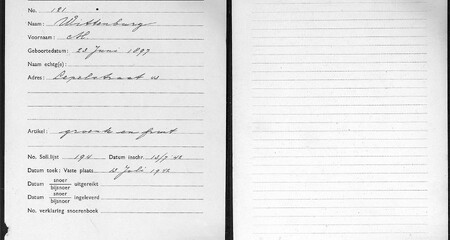 No. 181
Naam: Wittenburg
Voornaam: M.
Geboortedatum: 23 Juni 1897
Naam echtg(e):
Adres: Lepelstraat
Artikel: groente en fruit
No. Soll.lijst 194 Datum inschr.
Datum toek: Vaste plaats Juli 1942
Datum snoer/bijsnoer uitgereikt
Datum snoer/bijsnoer ingeleverd
No. verklaring snoerenboek